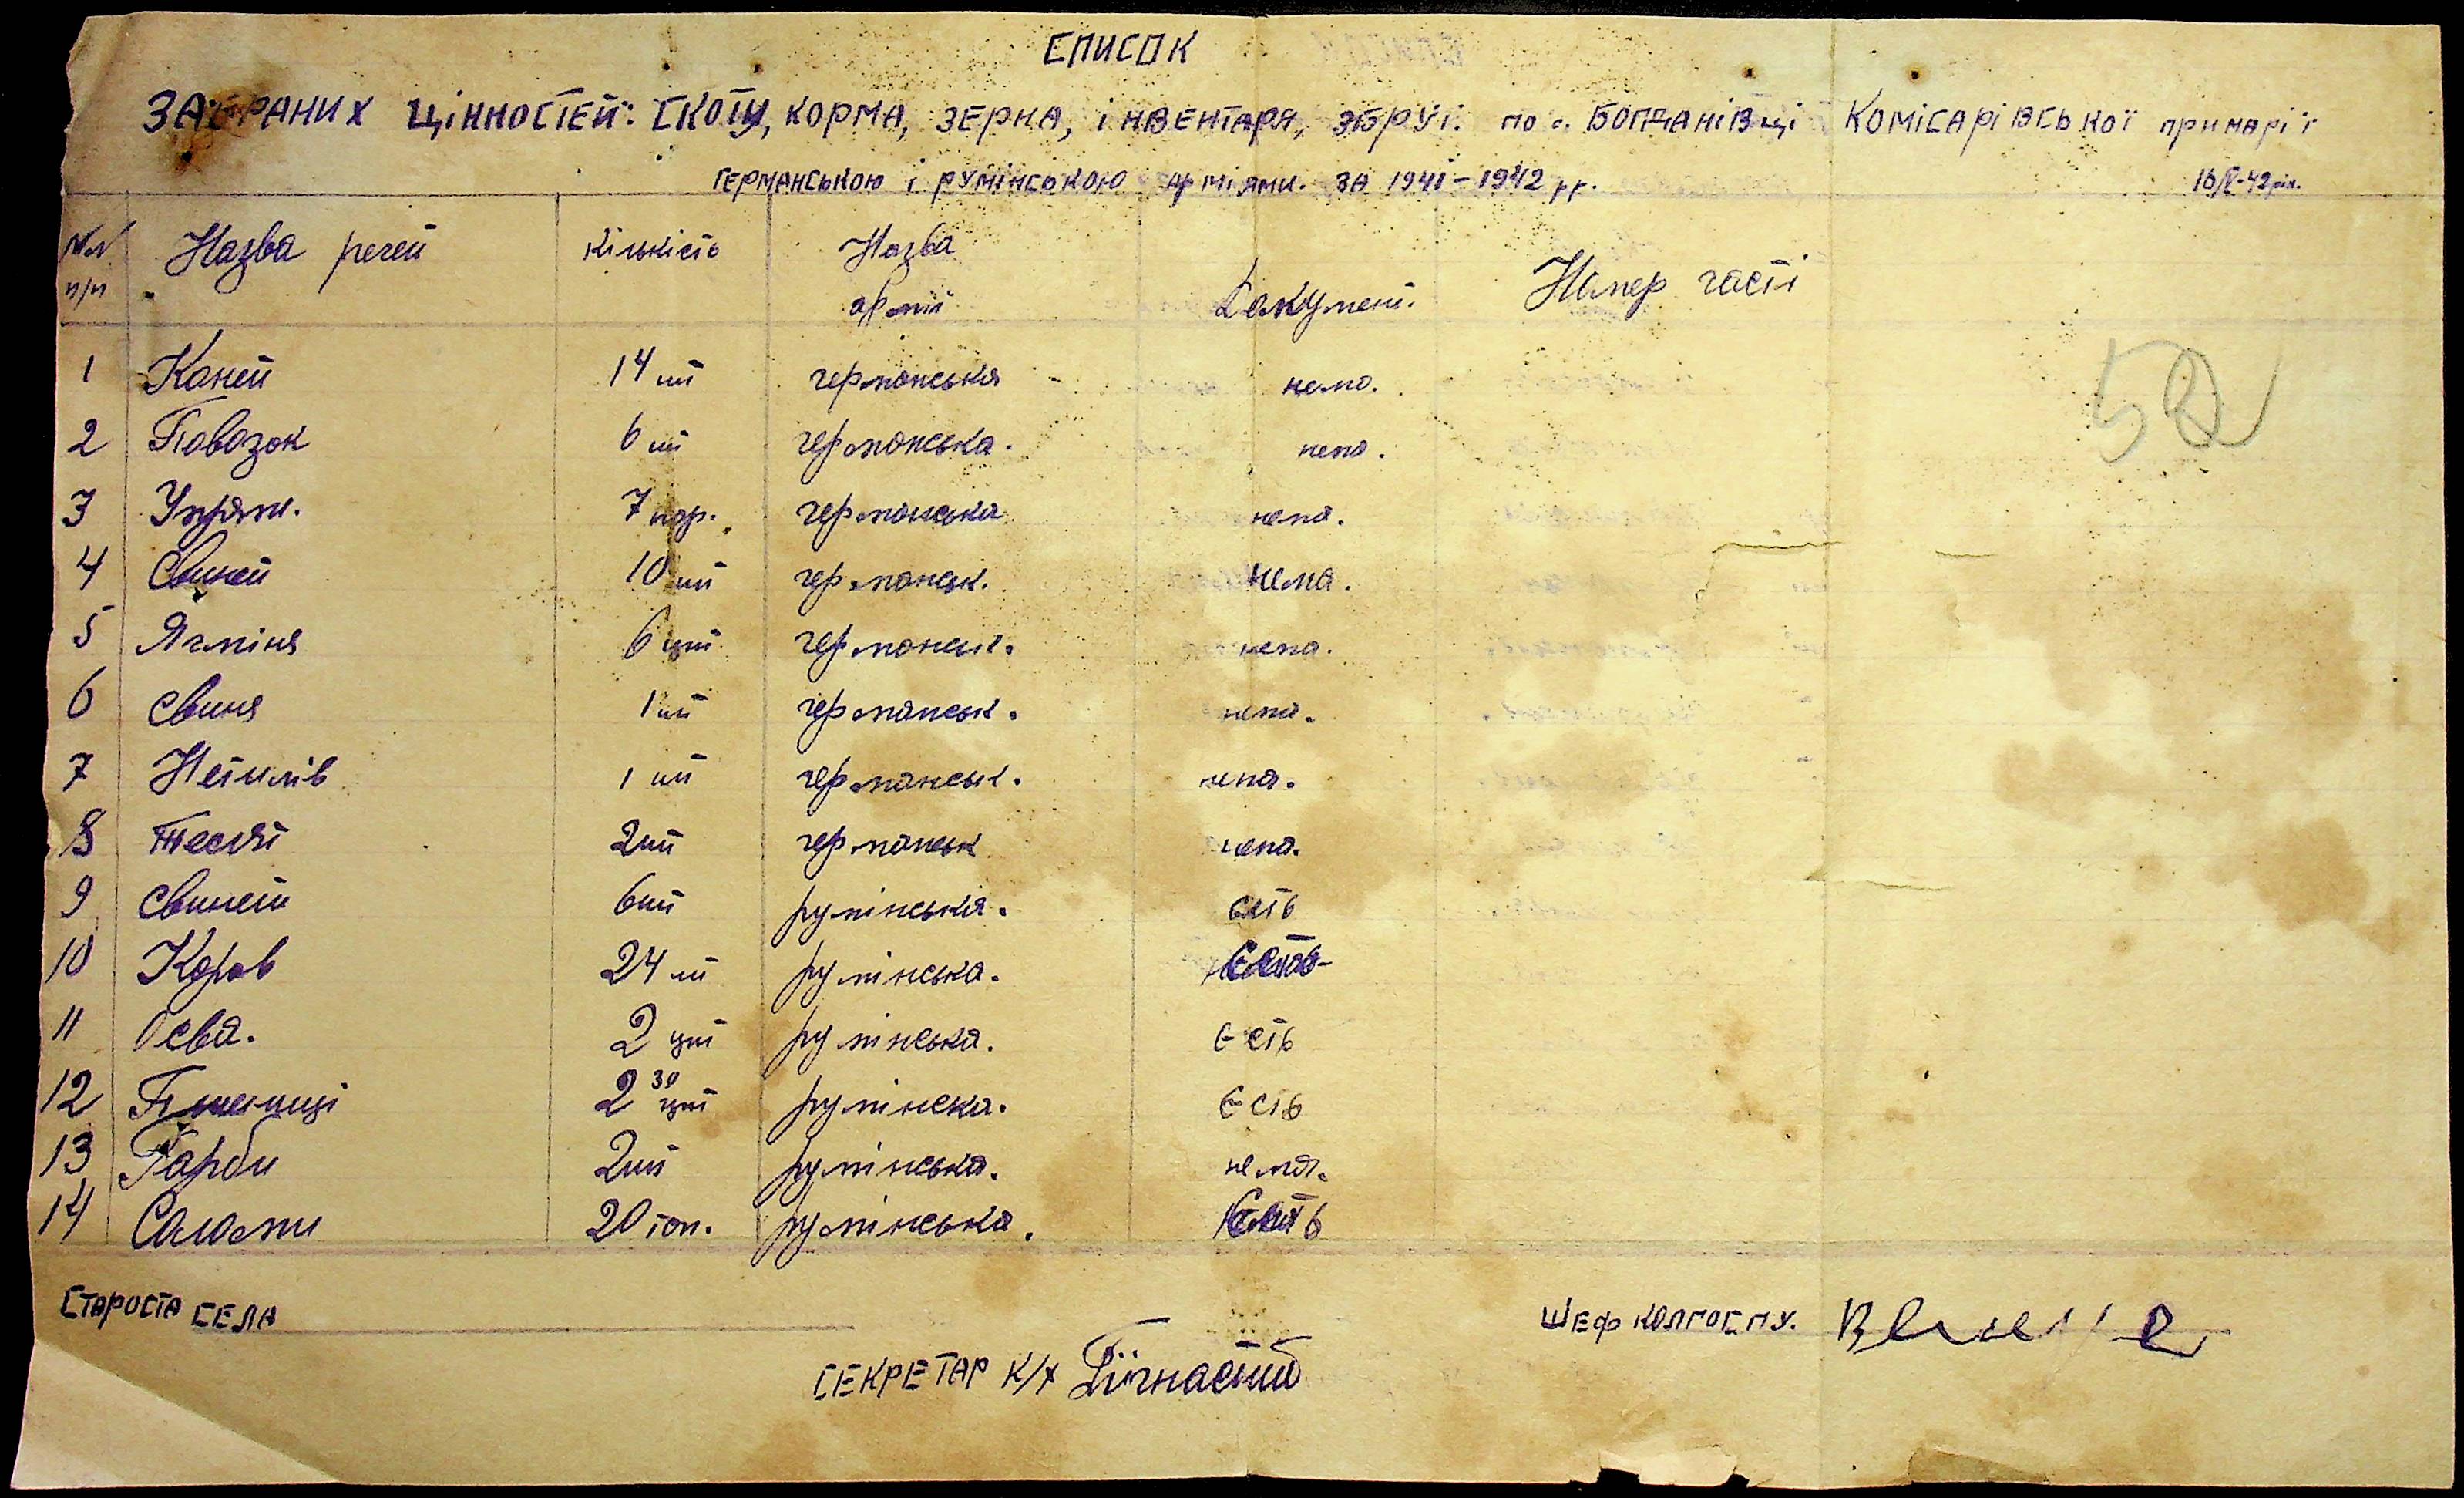 СПИСОК
ЗАБРАНИХ ЦІННОСТЕЙ: СКОТУ, КОРМА, ЗЕРНА, ІНВЕНТАРЯ, ЗБРУЇ. по с. БОГДАНІВЦІ КОМІСАРІВСЬКОЇ примарії
ГЕРМАНСЬКОЮ І РУМІНСЬКОЮ арміями. ЗА 1941-1942 рр.
16/V-42 рік.
№№ п/п Назва речей кількість Назва армій Документ. Номер часті
1 Коней 14 шт германська нема.
2 Повозок 6 шт германська. нема.
3 Упряж. 7 пар. германська нема.
4 Свиней 10 шт германськ. нема.
5 Ячміня 6 цнт германськ. нема.
6 свиня 1 шт германськ. нема.
7 Нетилів 1 шт германськ. нема.
8 телят 2 шт германськ нема.
9 свиней 6 шт румінська. єсть
10 Коров 24 шт румінська. Єсть
11 Овса. 2 цнт румінська. Єсть
12 Пшениці 2 30 цнт румінска. Єсть
13 Гарби 2 шт румінська. нема.
14 Соломи 20 тон. румінська. Єсть
52
СТАРОСТА СЕЛА
ШЕФ КОЛГОСПУ.
СЕКРЕТАР К/Х